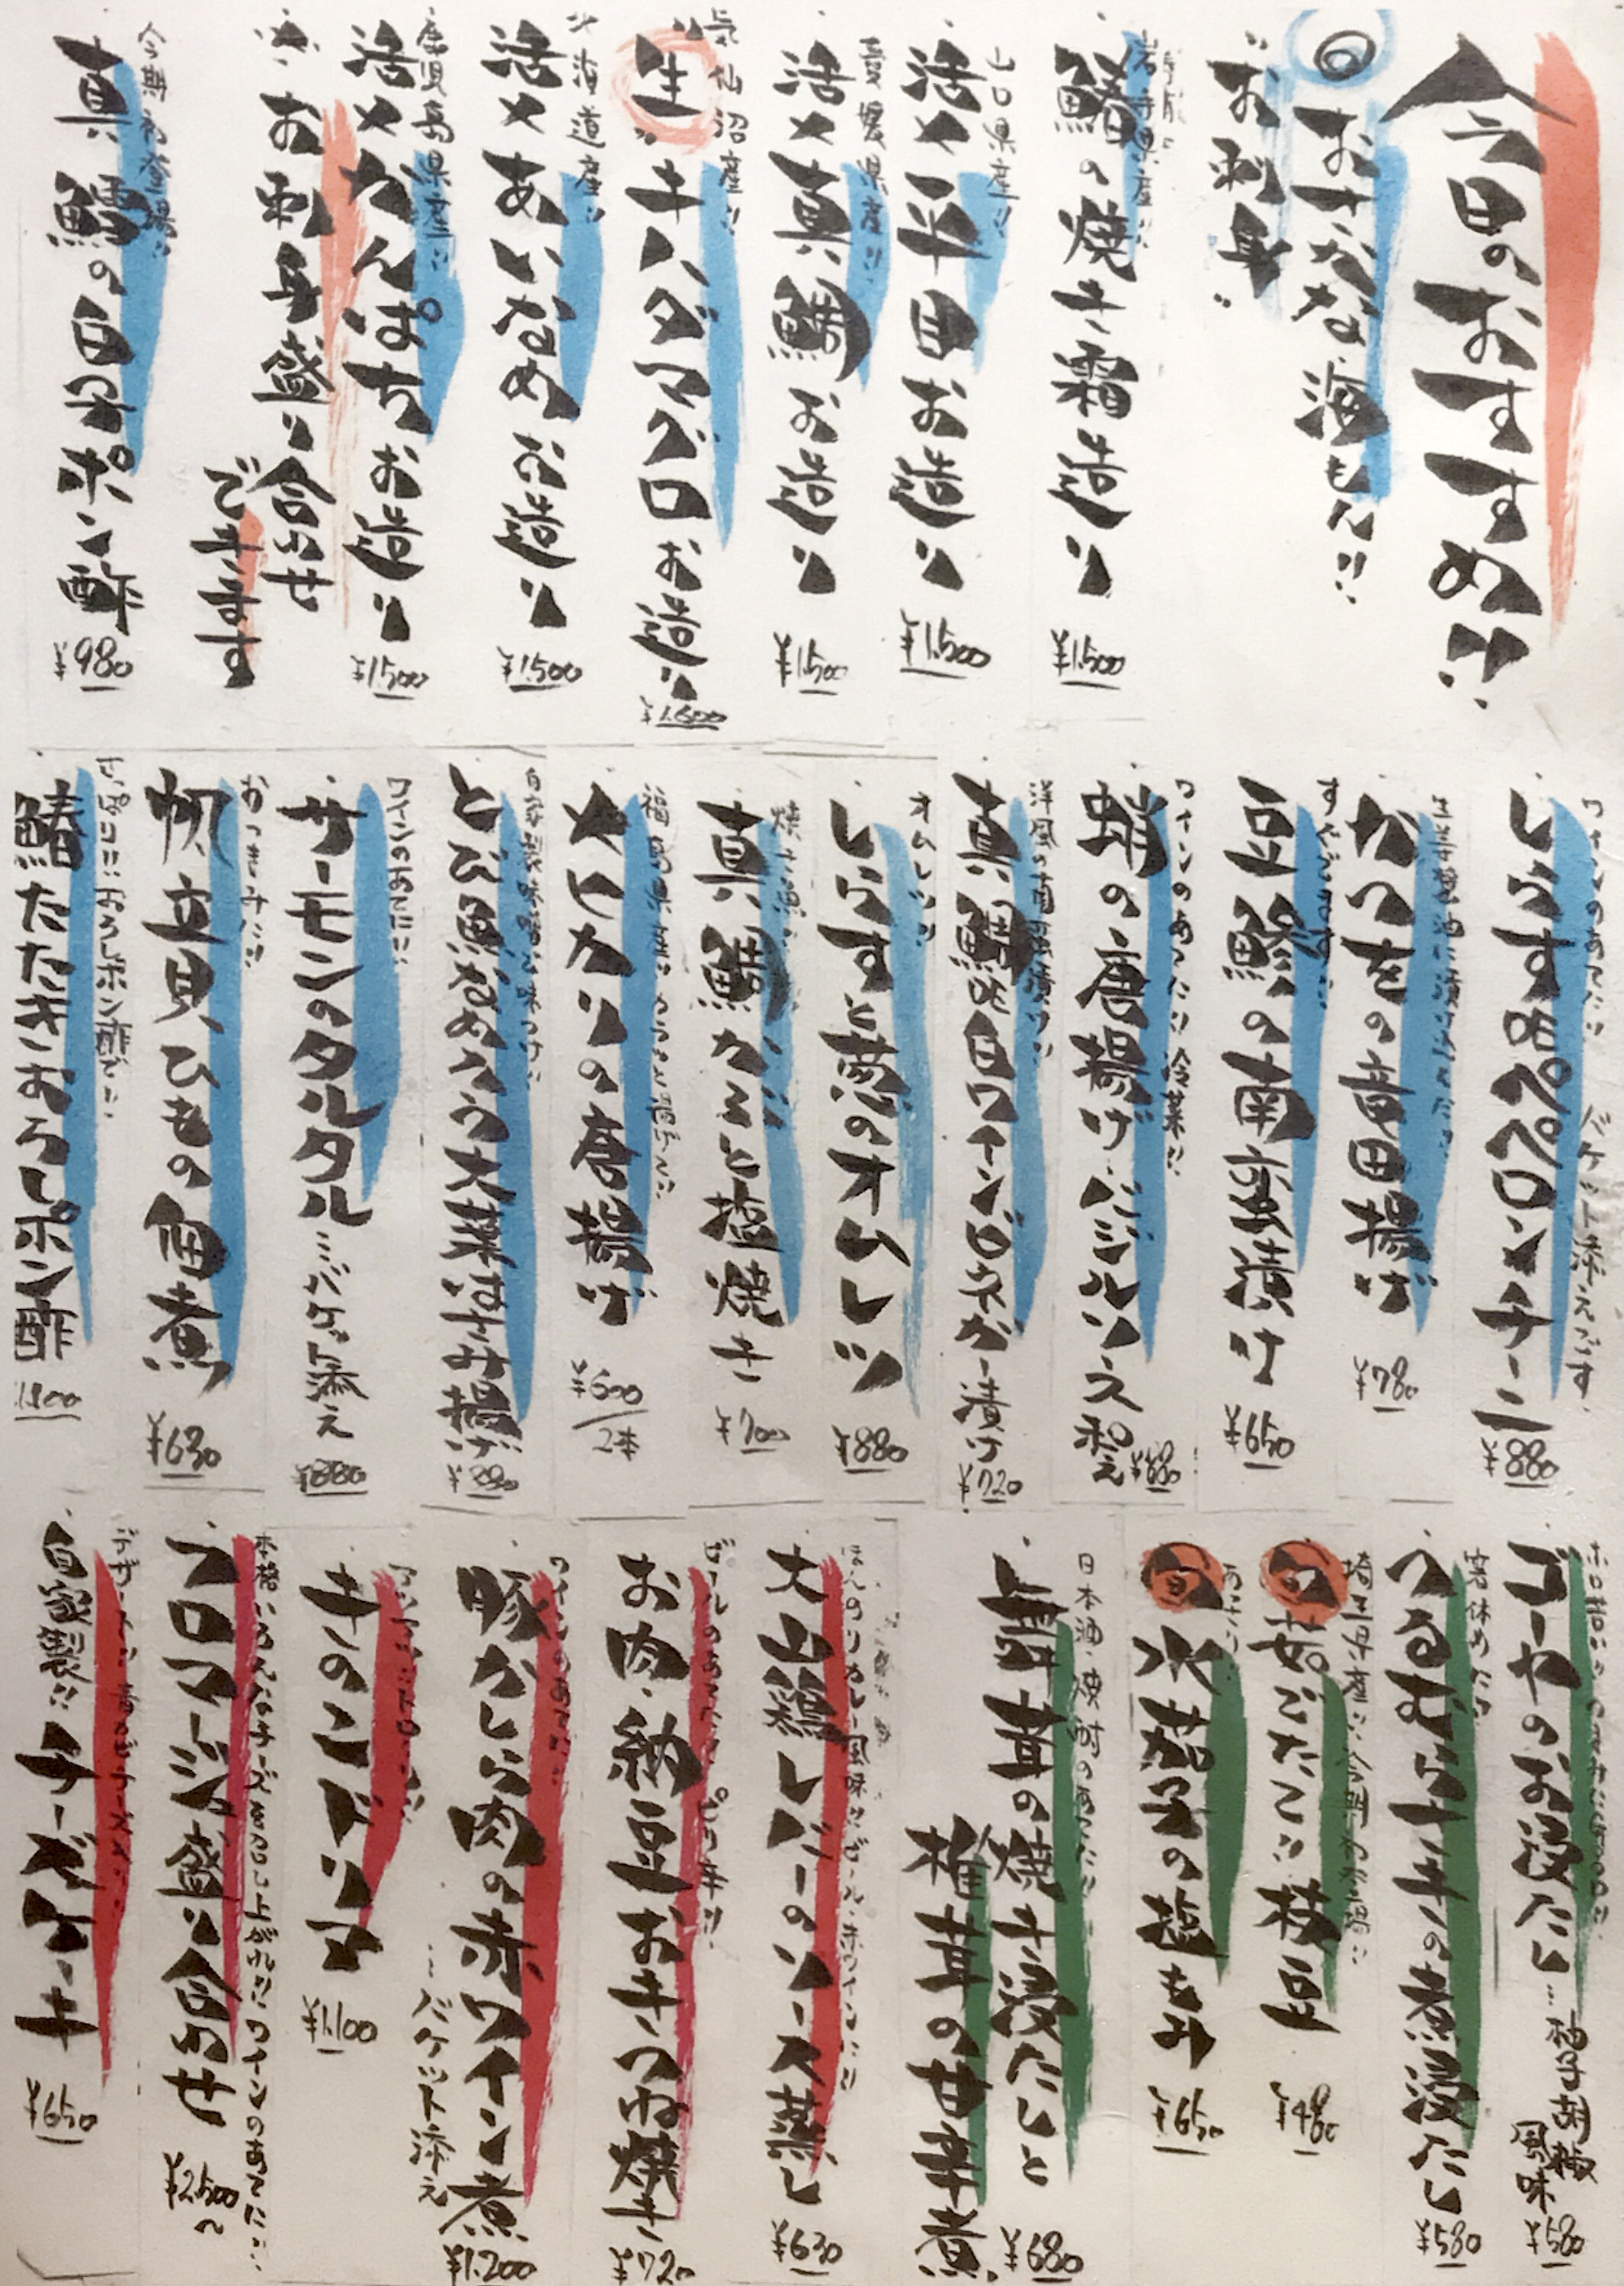 今日のおすすめ!!
◎おさかな海もん!!
お刺身
岩手県産!!
鰆の焼き霜造り
¥1,500
山口県産!!
活〆平目お造り
¥1,500
愛媛県産!!
活〆真鯛お造り
¥1,500
気仙沼産!!
生!!キハダマグロお造り
¥1,600
北海道産!!
活〆あいなめお造り
¥1,500
鹿児島県産!!
活〆かんぱちお造り
¥1,500
お刺身盛り合わせ
できます
今期初登場!!
真鱈の白子ポン酢
¥980
ワインのあてに!!
バケット添えです
しらすペペロンチーニ
¥880
かつをの竜田揚げ
¥780
すぐでます!!
豆鯵の南蛮漬け
¥650
ワインのあてに!!冷菜!!
蛸の唐揚げバジルソース和え
¥880
洋風の南蛮漬け!!
真鯛白ワインビネガー漬け
¥720
オムレツ!!
しらすと葱のオムレツ
¥880
焼き魚!!
真鯛カマ塩焼き
¥700
メヒカリの唐揚げ
¥600/2本
とび魚なめろう大葉はさみ揚げ
¥880
ワインのあてに!!
サーモンのタルタル…バケット添え
¥880
おつまみに!!
帆立貝ひもの佃煮
¥630
さっぱりに!!おろしポン酢で!!
鰆たたきおろしポン酢
1,100
ゴーヤのお浸だし…柚子胡椒
風味
¥580
箸休めに!!
つるむらさきの煮浸だし
¥580
埼玉県産!!今期初登場!!
茹でたて!!枝豆
¥480
水茄子の塩もみ
¥650
日本酒・焼酎のあてに!!
舞茸の焼き浸だしと
椎茸の甘辛煮
¥680
ほんのりカレー風味!!ビール・赤ワインに!!
大山鶏レバーのソース蒸し
¥630
ビールのあてに!!
お肉・納豆おきつね焼き
¥720
ワインのあてに!!
豚かしら肉の赤ワイン煮
…バケット添え
¥1,200
キのコンドリア
¥1,100
フロマージュ盛り合わせ
¥2,500〜
自家製!!チーズケーキ
¥650